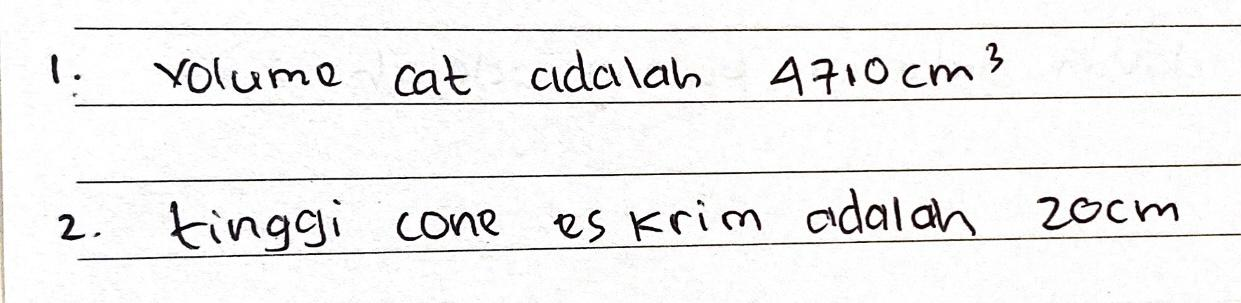 1. volume cat adalah 4710 cm³
2. tinggi cone es krim adalah 20cm